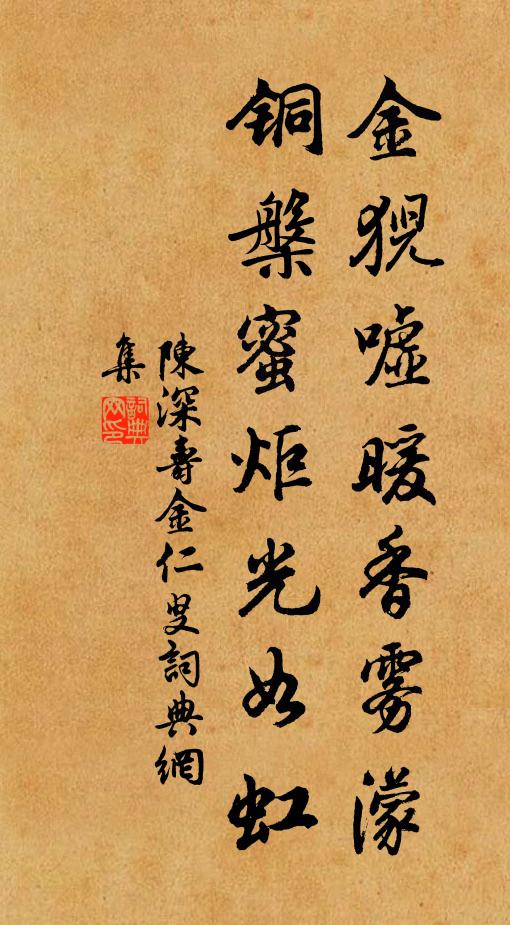 金猊嘘暖香雾濛
銅槃蜜炬光如虹
陳深壽金仁叟詞典網
集
詞典網印